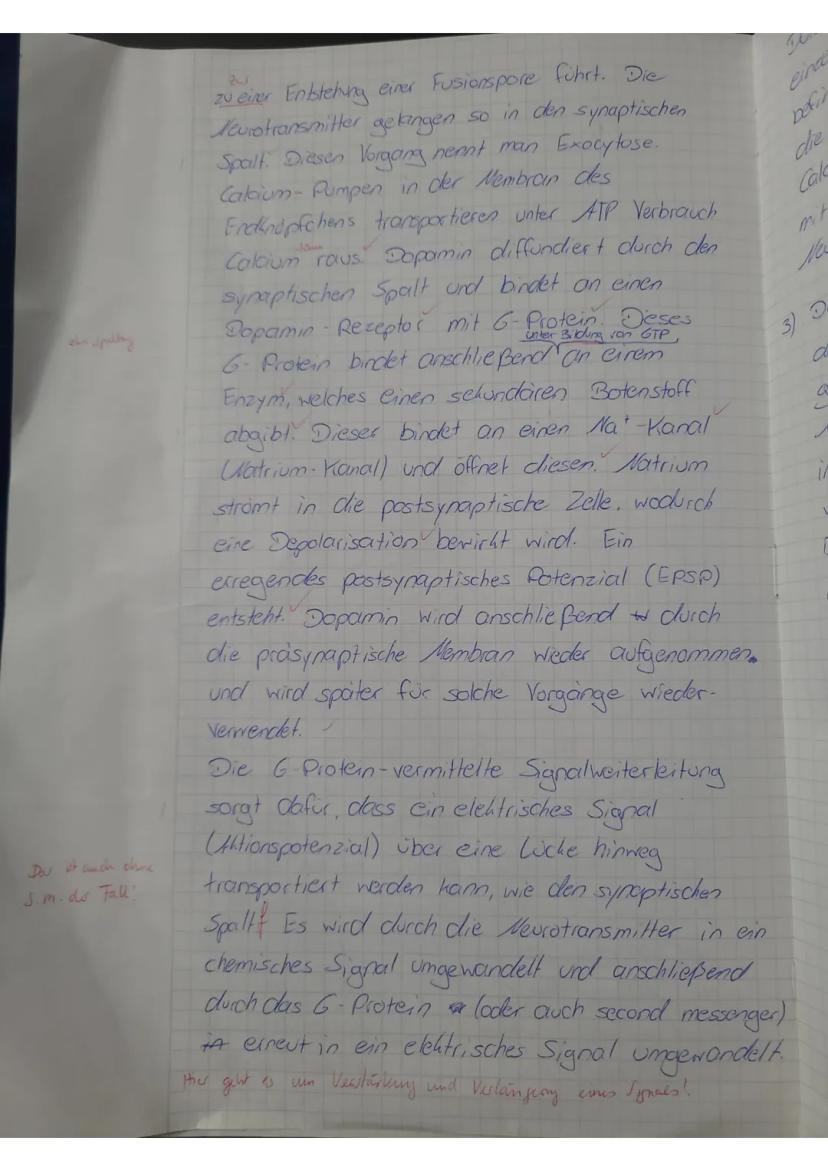 zu
zu einer Entstehung einer Fusionspore führt. Die
Neurotransmitter gelangen so in den synaptischen
Spalt. Diesen Vorgang nennt man Exocytose.
Calcium-Pumpen in der Membran des
Endknöpfchens transportieren unter ATP Verbrauch
Calcium raus. Dopamin diffundiert durch den
synaptischen Spalt und bindet an einen
Dopamin-Rezeptor mit G-Protein. Dieses
unter Bildung von GTP
G-Protein bindet anschließend an einem
Enzym, welches einen sekundären Botenstoff
abgibt. Dieser bindet an einen Na⁺-Kanal
(Natrium-Kanal) und öffnet diesen. Natrium
strömt in die postsynaptische Zelle, wodurch
eine Depolarisation bewirkt wird. Ein
erregendes postsynaptisches Potenzial (EPSP)
entsteht. Dopamin wird anschließend durch
die präsynaptische Membran wieder aufgenommen.
und wird später für solche Vorgänge wieder-
verwendet.
Die G-Protein-vermittelte Signalweiterleitung
sorgt dafür, dass ein elektrisches Signal
(Aktionspotenzial) über eine Lücke hinweg
Das ist auch ohne
s.m. der Fall!
transportiert werden kann, wie den synaptischen
Spalt. Es wird durch die Neurotransmitter in ein
chemisches Signal umgewandelt und anschließend
durch das G-Protein (oder auch second messenger)
erneut in ein elektrisches Signal umgewandelt.
Hier geht es um Verstärkung und Verlängerung eines Signals!
3)